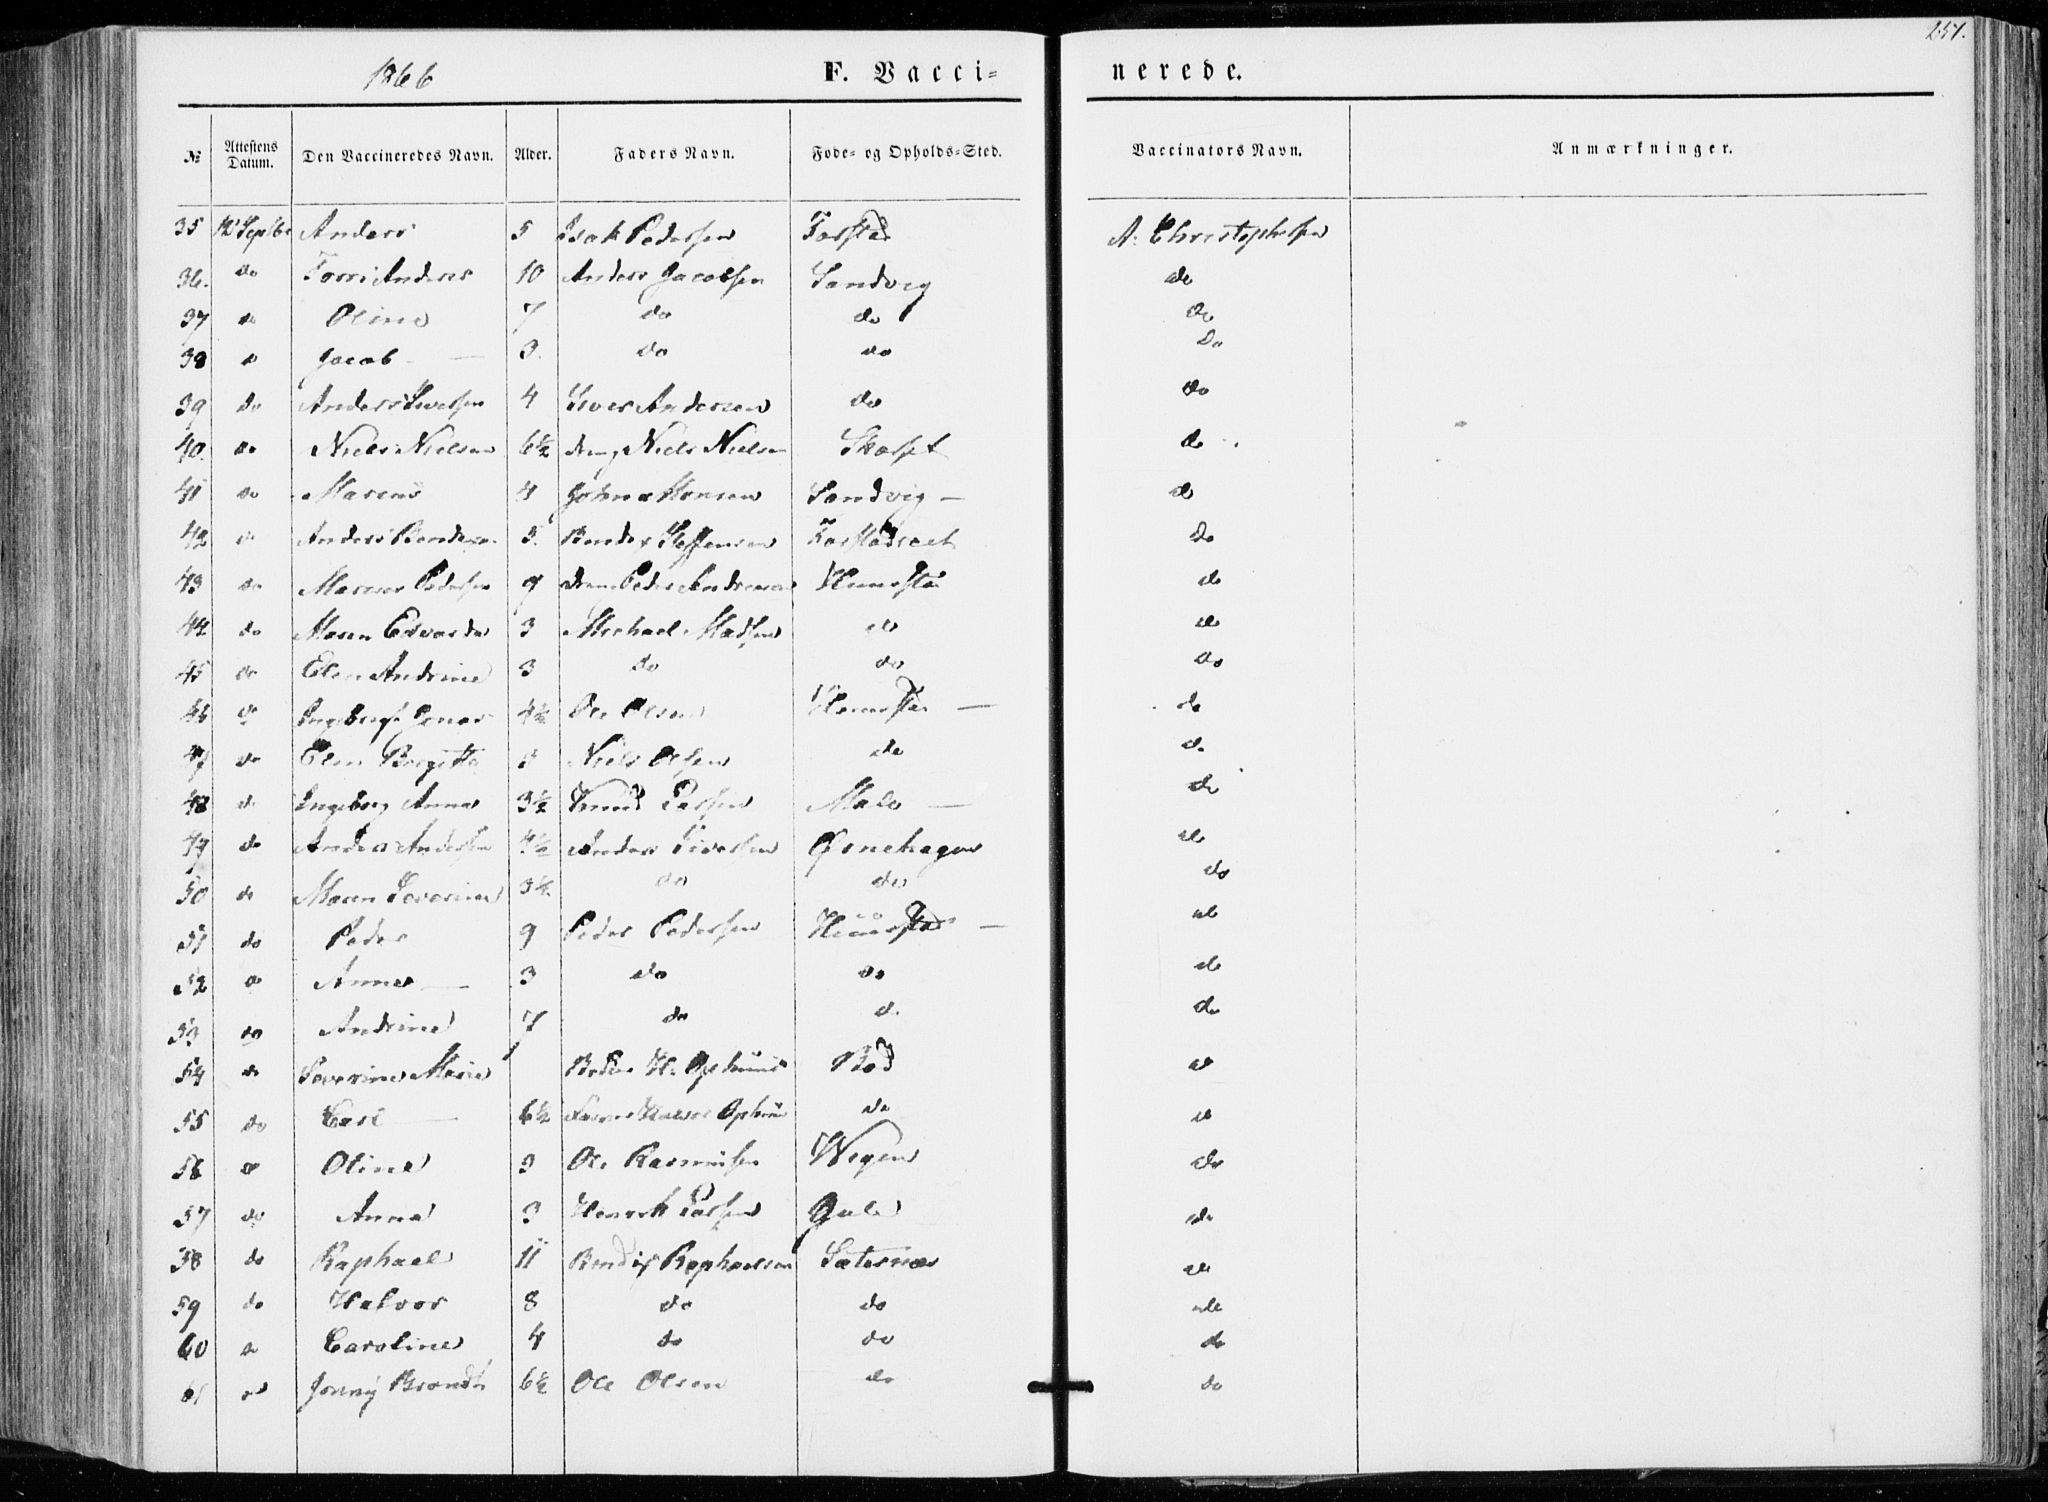 257.
1866
F. Vacci-nerede.
№ Attestens Datum. Den Vaccineredes Navn. Alder. Faders Navn. Føde- og Opholds-Sted. Vaccinators Navn. Anmærkninger.
35 Anders 5 Isak Pedersen Farstad A. Christophersen
36. do Anders 10 Anders Jacobsen Sandvig do
37 do Oline 7 do do do
38 do Jacob 3. do do do
39 do Anders Iversen 4 Iver Andersen do do
40. do Niels Nielsen 6½ Niels Nielsen do
41 do 4 John Monsen Sandvig do
42 do Anders 3. Bendix Steffensen do
43 do Pedersen 9 Peder Andreasen do
44 do Maren 3 Michael Madsen do do
45 do Elen Andrine 3 do do do
46 do 4½ Ole Olsen do
47 do Elen Birgitte 3 Niels Olsen do do
48 do Ingeborg Anna 3½ Knud Male do
49 do Anders Andersen 4½ Anders Iversen Ørnehagen do
50 do Maren Severine 3½ do do do
51 do Peder 9 Peder Pedersen do
52 do Anne 3 do do do
53 do Andrine 7 do do do
54 do Severine Marie Bod do
55 do Carl 6½ do do
56 do Oline 3 Ole Rasmusen Wigen do
57 do Anna 3 Gule do
58 do Raphael 11 Bendix Raphaelsen Sæternæs do
59 do Halvor 8 do do do
60 do Caroline 4 do do do
61 do Jenny Brandt 6½ Ole Olsen do do